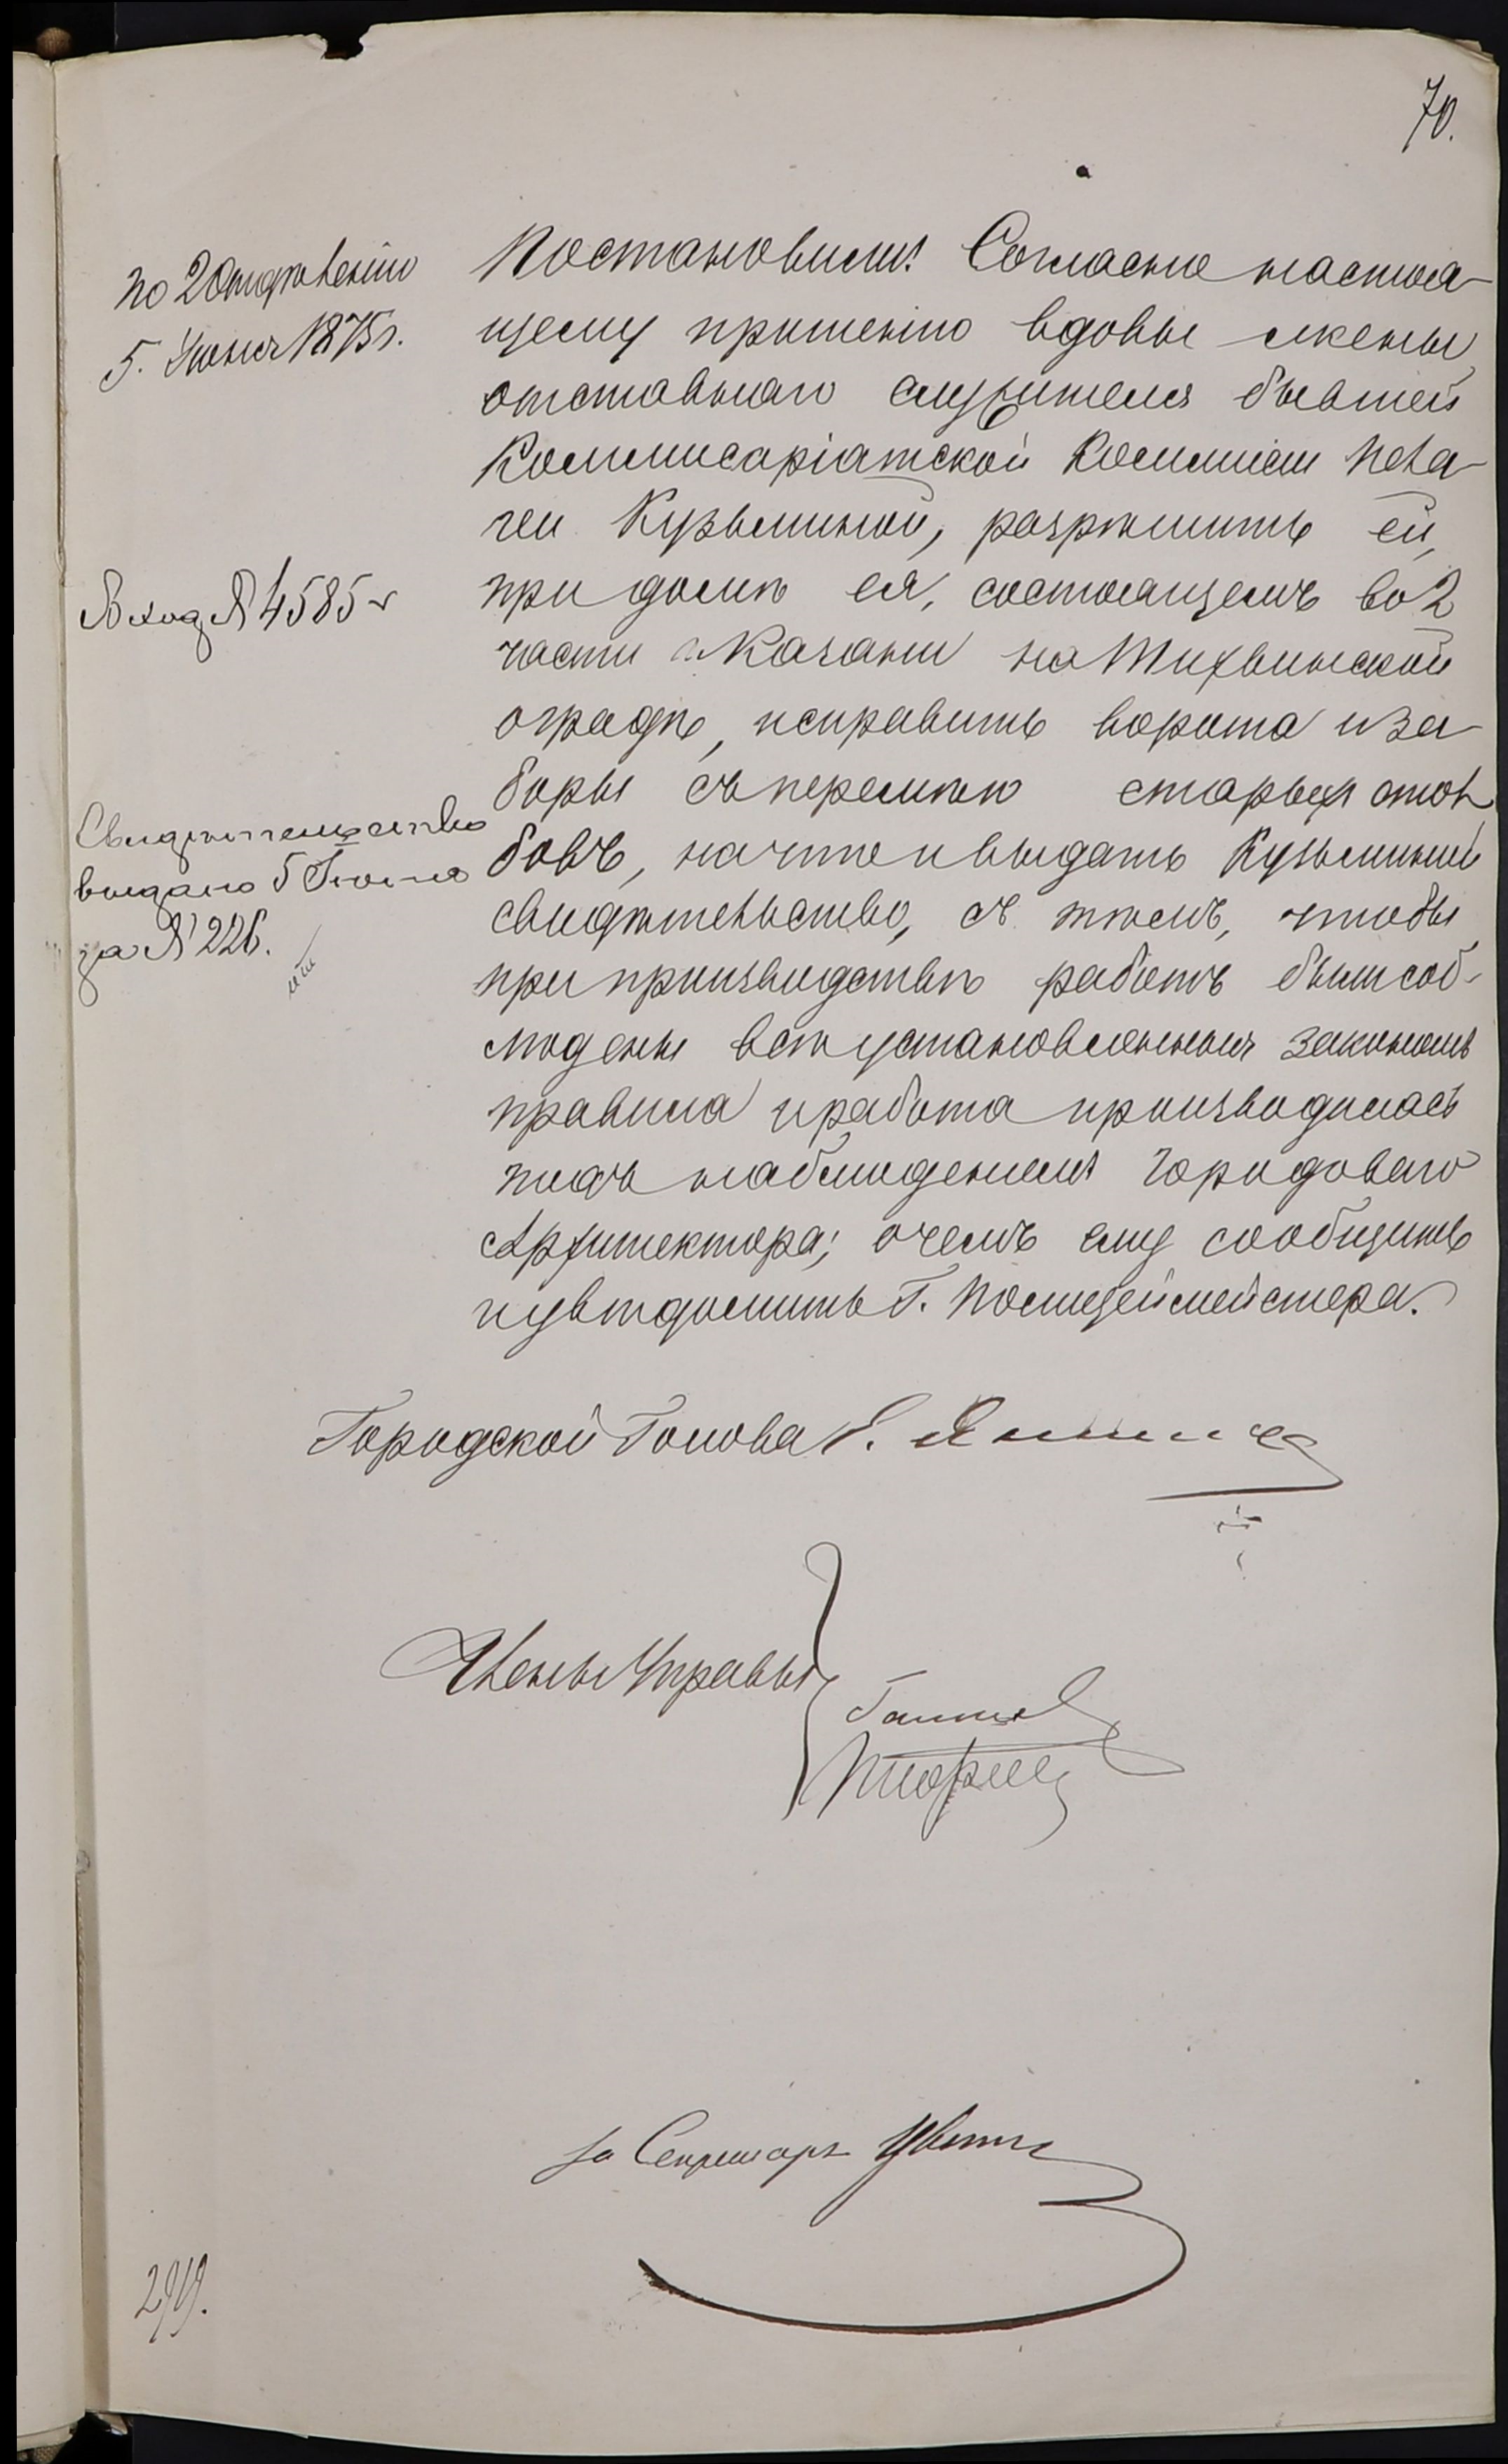 70.
по 2 Отдѣленію
5. Июня 1875 г.
Постановили: Согласно настоя-
щему прошенію вдовы жены
отставнаго служителя бывшей
Коммисаріатской Коммисіи Пела-
геи Кузьминой, разрѣшить ей,
при домѣ ея, состоящемъ во 2
части г. Казани на Тихвинской
оградѣ, исправить ворота и за-
боры съ перемѣною старыхъ стол
бовъ, на что и выдать Кузьминой
свидѣтельство, съ тѣмъ, чтобы
при производствѣ работъ были соб-
людены всѣ установленныя закономъ
правила и работа производилась
подъ наблюденіемъ городоваго
Архитектора; о чемъ ему сообщить
и увѣдомить Г. Полицеймейстера.
Вход № 4585
Свидѣтельство
выдано 5 Іюня
за № 226.
Городской Голова Е.
Члены Управы
За Секретаря
299.